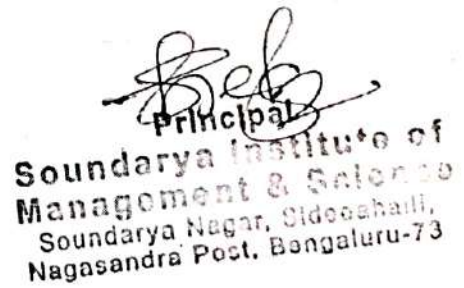 Principal
Soundarya Institute of
Management & Science
Soundarya Nagar, Sidedahalli,
Nagasandra Post, Bengaluru-73